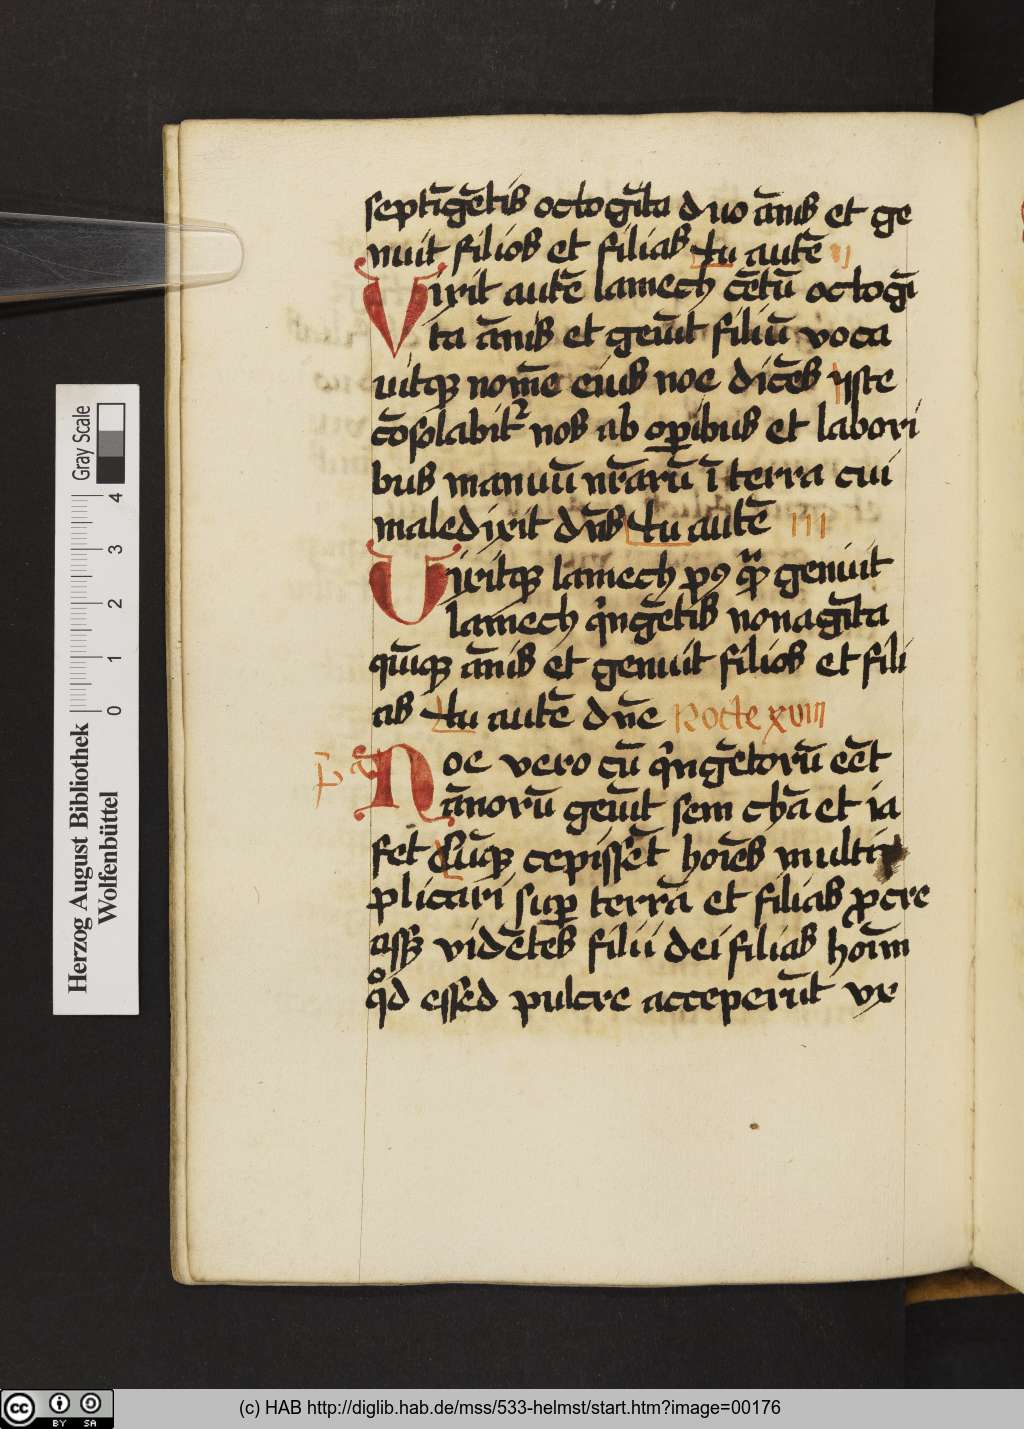 septīgētis octogīta duo ānis et ge
nuit filios et filias tu autē II
Vixit autē lamech cētū octogī
ta ānis et genūit filiū voca
uitqʒ nom̄e eius noe dicēs iste
cōsolabitᷣ nos ab oꝑibus et labori
bus manuū nr̄arū ī terra cui
maledixit dn̄s tu autē III
Vixitqʒ lamech pꝯ qᷓꝫ genuit
lamech qͥngētis nonagīta
qūiqʒ ānis et genuit filios et fili
as tu autē dn̄e Nocte xviii
F a Noe vero cū qͥngētorū eēt
ānorū genūit sem chā et ia
fet Cūqʒ cepissēt hoīes multi
plicari suꝑ terrā et filias ꝓcre
assʒ vidētes filii dei filias hoīm
qͦd essed pulcre acceperūt vx
Gray Scale
4 3 2 1 0
Herzog August Bibliothek
Wolfenbüttel
cc BY SA
(c) HAB http://diglib.hab.de/mss/533-helmst/start.htm?image=00176